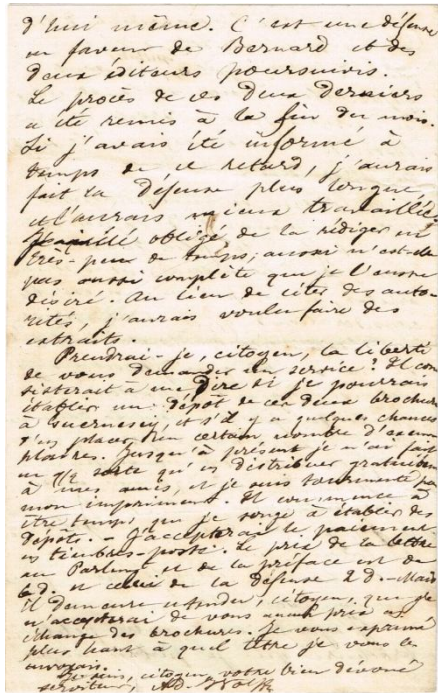 d'hui même. C'est une défense
en faveur de Bernard et des
deux éditeurs poursuivis.
Le procès de ces deux derniers
a été remis à la fin du mois.
Si j'avais été informé à
temps de ce retard, j'aurais
fait la défense plus longue
et l'aurais mieux travaillée.
J'ai été obligé de la rédiger en
très-peu de temps; aussi n'est-elle
pas aussi complète que je l'eusse
désiré. Au lieu de citer des auto-
rités, j'aurais voulu faire des
extraits.
Prendrai-je, citoyen, la liberté
de vous demander un service? Il con-
sisterait à me dire si je pourrais
établir un dépôt de ces deux brochures
à Guernesey, et s'il y a quelques chances
d'en placer un certain nombre d'exem-
plaires. Jusqu'à présent je n'ai fait
en sorte qu'en distribuer gratuitement
à mes amis, et je suis tourmenté par
mon imprimeur. Il commence à
être temps que je songe à établir des
dépôts. - J'accepterais le paiement
en timbres-poste. Le prix de la lettre
au Parlmt et de la préface est de
6 d. et celui de la défense 2 d. - Mais
il demeure entendu, citoyen, que je
n'accepterai de vous aucun prix en
échange des brochures. Je vous exprime
plus haut à quel titre je vous les
envoyais.
Je suis, citoyen, votre bien dévoué
serviteur,